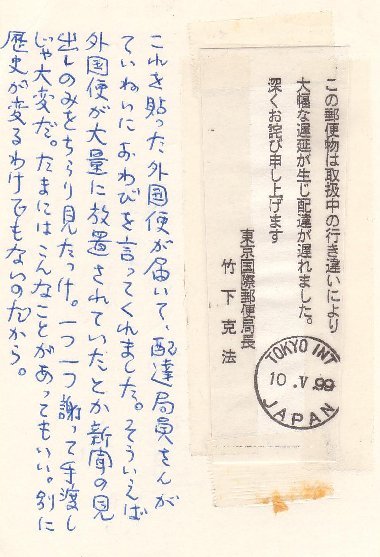 この郵便物は取扱中の行き違いにより
大幅な遅延が生じ配達が遅れました。
深くお詫び申し上げます
東京国際郵便局長
竹下克法
TOKYO INT
10.V.99
JAPAN
これを貼った外国便が届いて、配達局員さんが
ていねいにおわびを言ってくれました。そういえば
外国便が大量に放置されていたとか新聞の見
出しのみをちらり見たっけ。一つ一つ謝って手渡し
じゃ大変だ。たまにはこんなことがあってもいい。別に
歴史が変るわけでもないのだから。